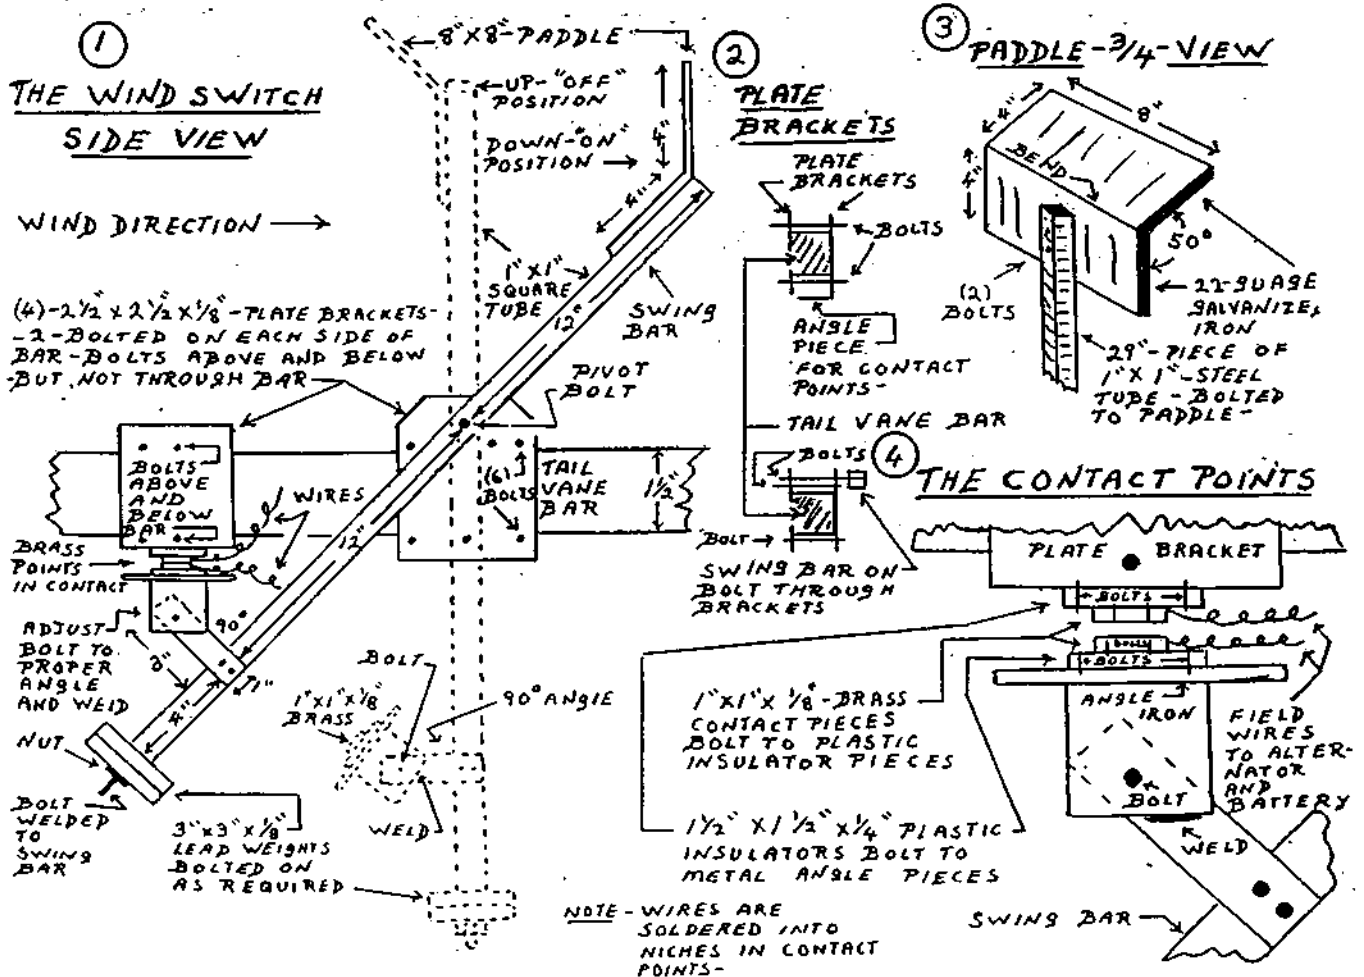 1
THE WIND SWITCH
SIDE VIEW
WIND DIRECTION
8"X8"-PADDLE
UP-"OFF"
POSITION
DOWN-"ON"
POSITION
4"
4"
1"X1"
SQUARE
TUBE
12"
SWING
BAR
(4)-2½"X2½"X⅛"-PLATE BRACKETS-
-2-BOLTED ON EACH SIDE OF
BAR-BOLTS ABOVE AND BELOW
-BUT NOT THROUGH BAR
PIVOT
BOLT
BOLTS
ABOVE
AND
BELOW
BAR
WIRES
(6)
BOLTS
TAIL
VANE
BAR
1½"
12"
BRASS
POINTS
IN CONTACT
ADJUST
BOLT TO
PROPER
ANGLE
AND WELD
90°
3"
1"
4"
NUT
BOLT
WELDED
TO
SWING
BAR
BOLT
1"X1"X⅛"
BRASS
90° ANGLE
WELD
3"X3"X⅛"
LEAD WEIGHTS
BOLTED ON
AS REQUIRED
2
PLATE
BRACKETS
PLATE
BRACKETS
BOLTS
ANGLE
PIECE
FOR CONTACT
POINTS-
TAIL VANE BAR
BOLTS
BOLT
SWING BAR ON
BOLT THROUGH
BRACKETS
3
PADDLE-3/4-VIEW
4"
8"
BEND
4"
50°
(2)
BOLTS
22-GUAGE
GALVANIZE,
IRON
29"-PIECE OF
1"X1"-STEEL
TUBE-BOLTED
TO PADDLE-
4
THE CONTACT POINTS
PLATE BRACKET
BOLTS
BOLTS
ANGLE
IRON
1"X1"X⅛"-BRASS
CONTACT PIECES
BOLT TO PLASTIC
INSULATOR PIECES
FIELD
WIRES
TO ALTER-
NATOR
AND
BATTERY
BOLT
WELD
1½"X1½"X¼" PLASTIC
INSULATORS BOLT TO
METAL ANGLE PIECES
SWING BAR
NOTE-WIRES ARE
SOLDERED INTO
NICHES IN CONTACT
POINTS-